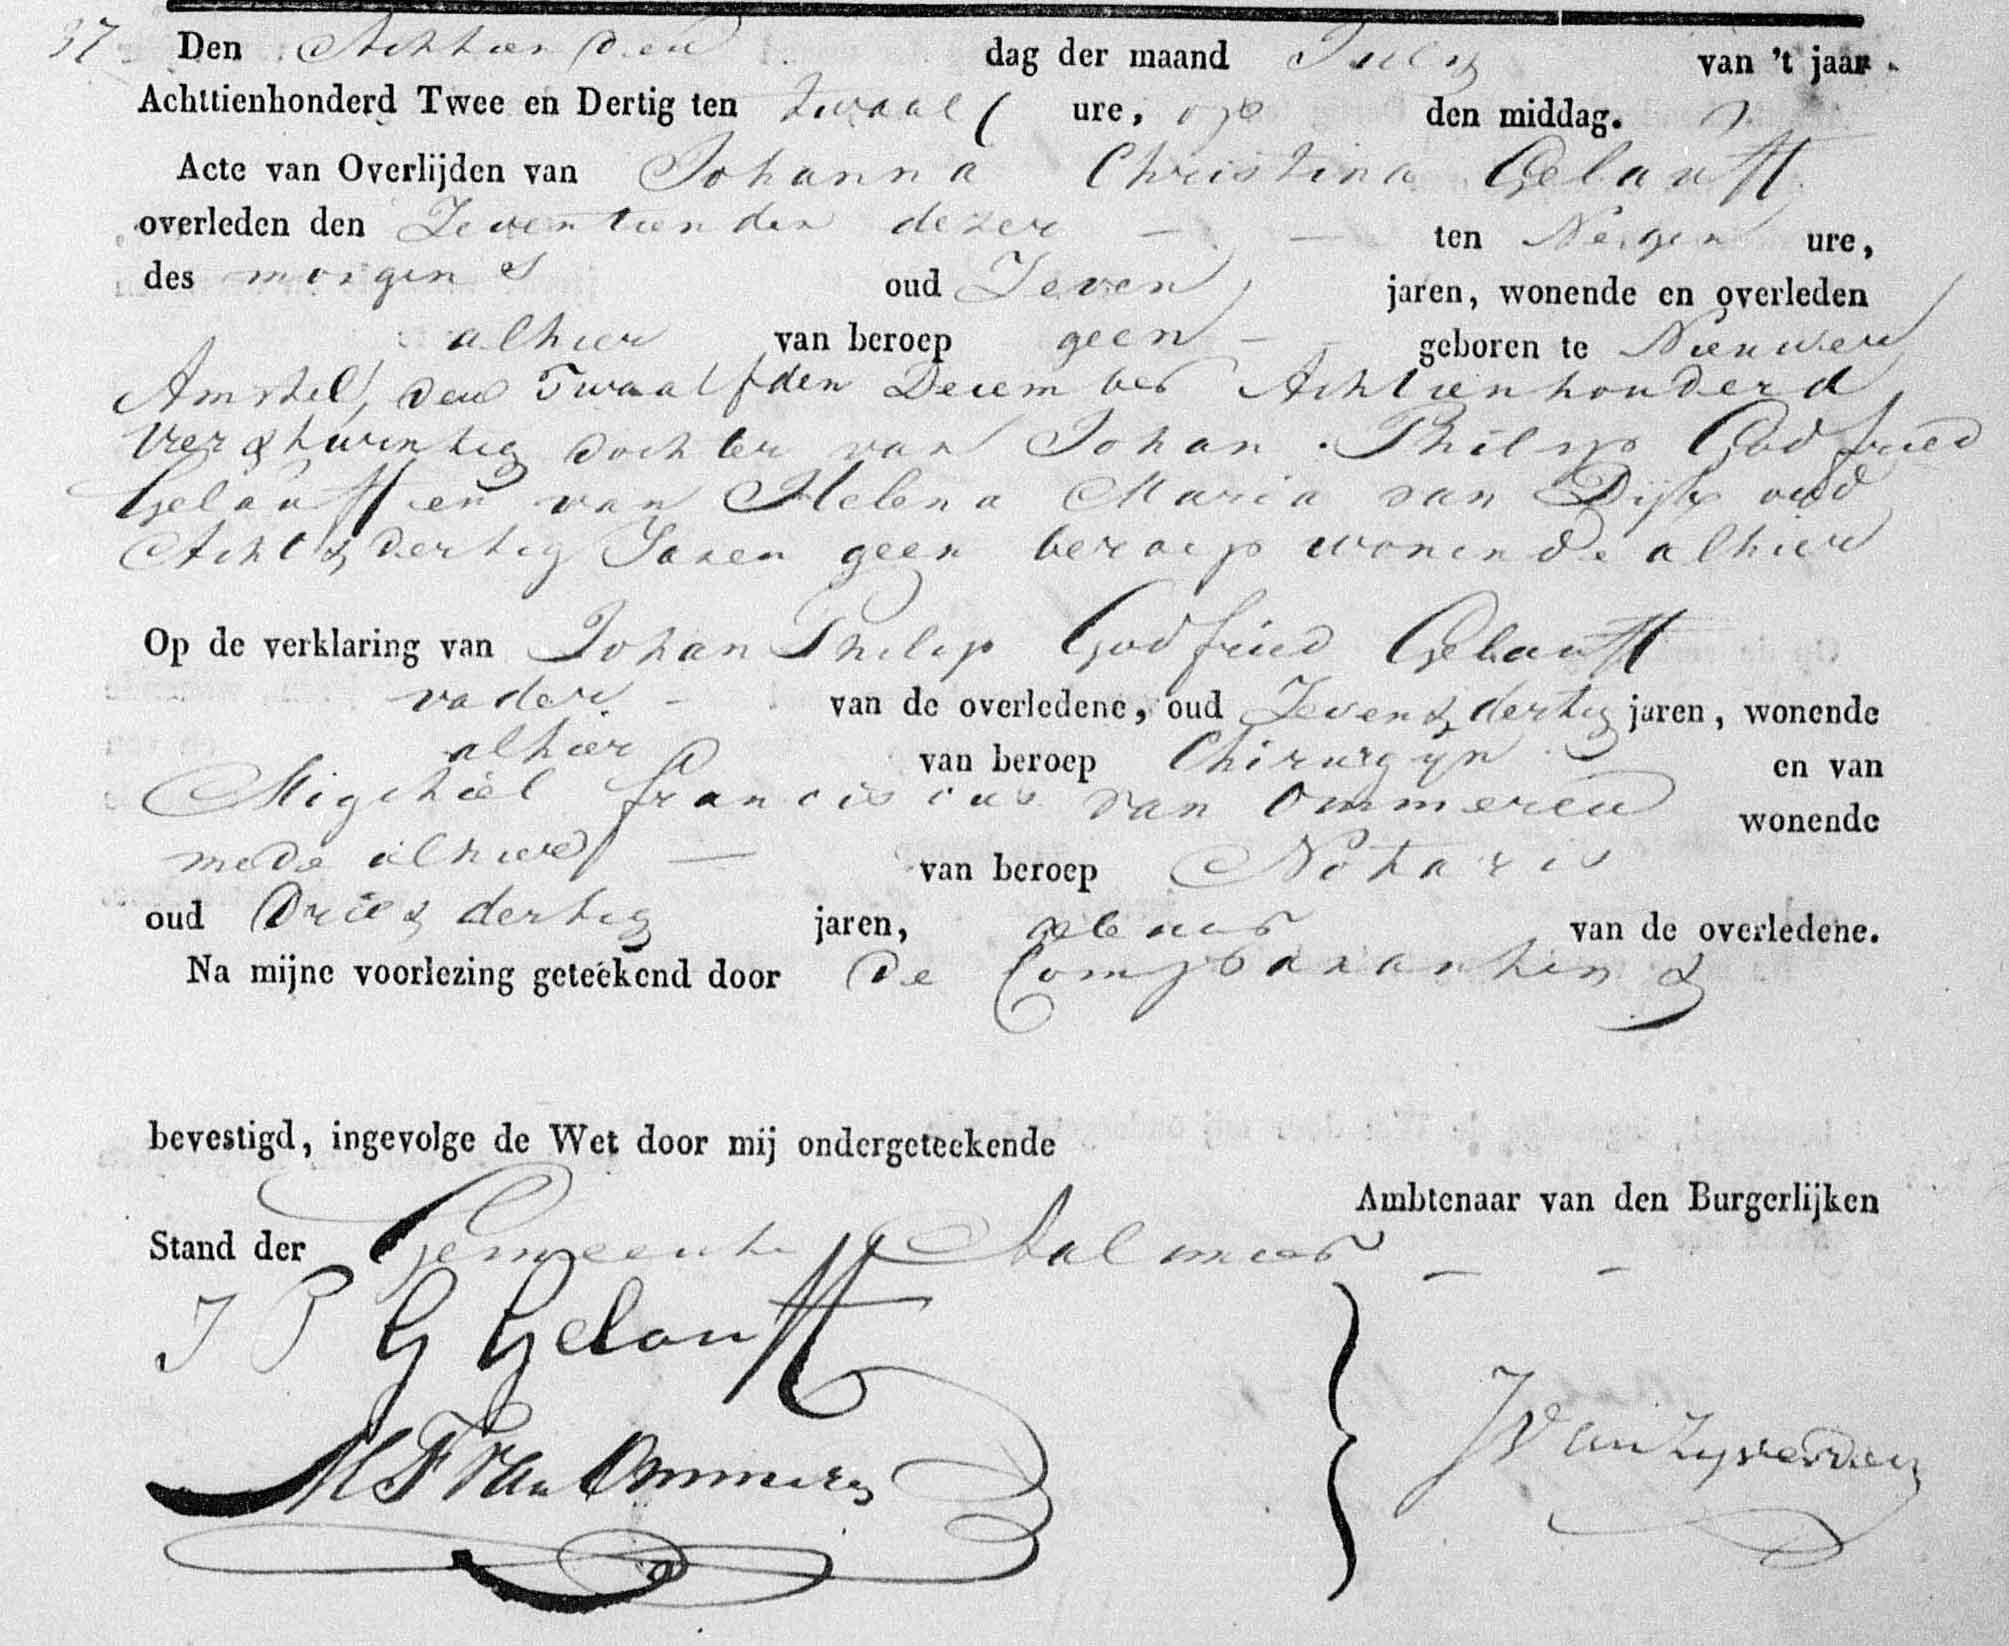 37 Den Achttienden dag der maand July van 't jaar
Achttienhonderd Twee en Dertig ten twaalf ure, op den middag.
Acte van Overlijden van Johanna Christina Gelauff
overleden den Zeventienden dezer — — ten Negen ure,
des morgens oud Zeven jaren, wonende en overleden
alhier van beroep geen - geboren te Nieuwer
Amstel, den Twaalfden December Achttienhonderd
Vier & twintig dochter van Johan Philip Godfried
Gelauff en van Helena Maria van Dijk oud
Acht & dertig Jaren geen beroep wonende alhier
Op de verklaring van Johan Philip Godfried Gelauff
vader - van de overledene, oud Zeven & dertig jaren, wonende
alhier van beroep Chirurgyn en van
Migchiel Franciscus van Ommeren wonende
mede alhier — van beroep Notaris
oud Drie & dertig jaren, van de overledene.
Na mijne voorlezing geteekend door de Comparanten &
bevestigd, ingevolge de Wet door mij ondergeteekende
Ambtenaar van den Burgerlijken
Stand der Gemeente Aalsmeer — -
J P G Gelauff
M F van Ommeren